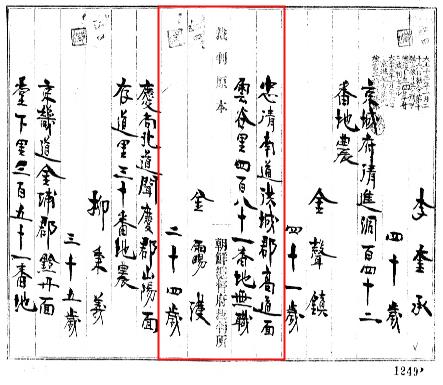 李
承
四十歲
京城府清進洞百四十二
番地農
金聲鎮
四十一歲
忠清南道洪城郡高道面
雲谷里四百八十一番地無職
裁判原本
金
濩
二十四歲
慶尚北道聞慶郡山陽面
存道里三十番地農
柳秉
三十五歲
京畿道金浦郡
面
臺下里二百五十一番地
1249